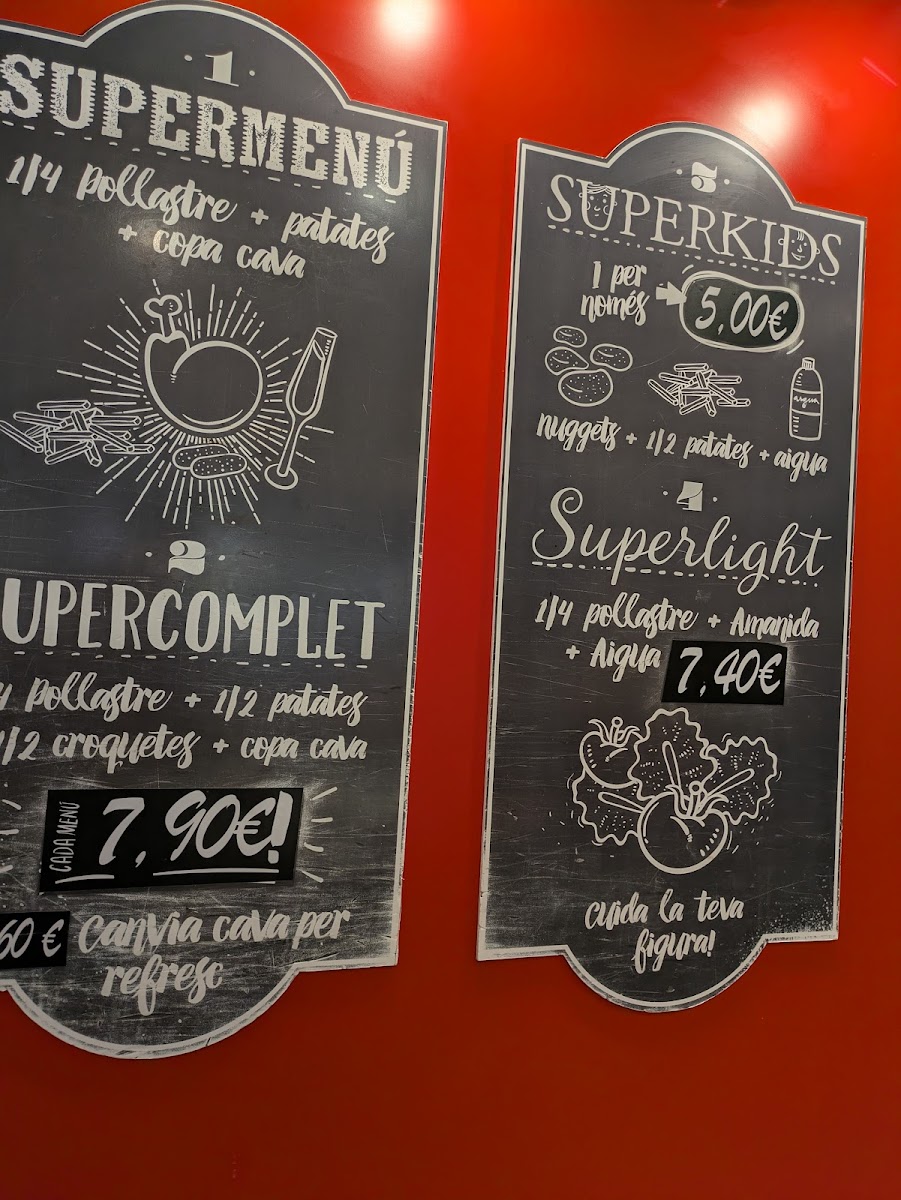 1
SUPERMENÚ
1/4 pollastre + patates
+ copa cava
2
UPERCOMPLET
4 pollastre + 1/2 patates
1/2 croquetes + copa cava
CADA MENÚ
7,90€!
60 € Canvia cava per
refresc
3
SUPERKIDS
1 per
només
5,00€
aigua
nuggets + 1/2 patates + aigua
4
Superlight
1/4 pollastre + Amanida
+ Aigua 7,40€
cuida la teva
figura!